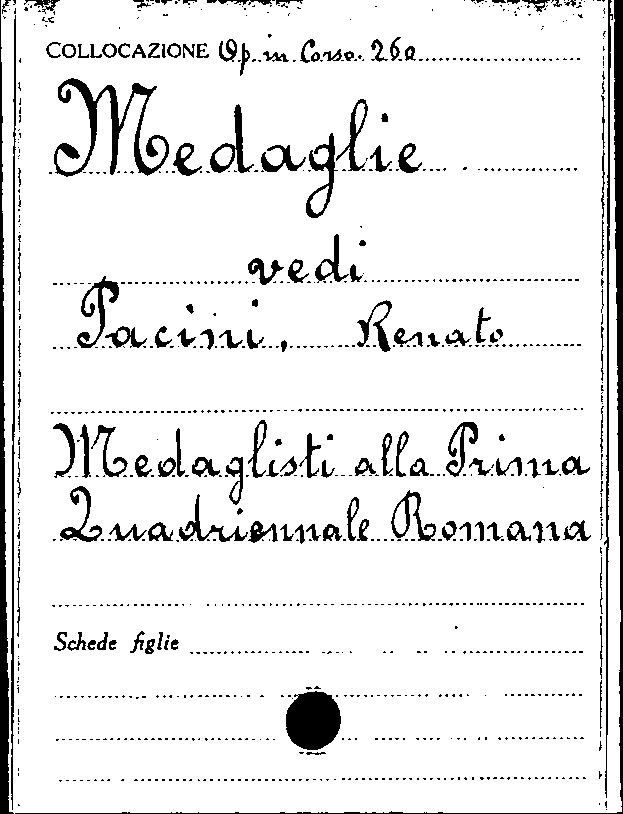 COLLOCAZIONE Op. in Corso. 260
Medaglie
vedi
Pacini, Renato
Medaglisti alla Prima
Quadriennale Romana
Schede figlie